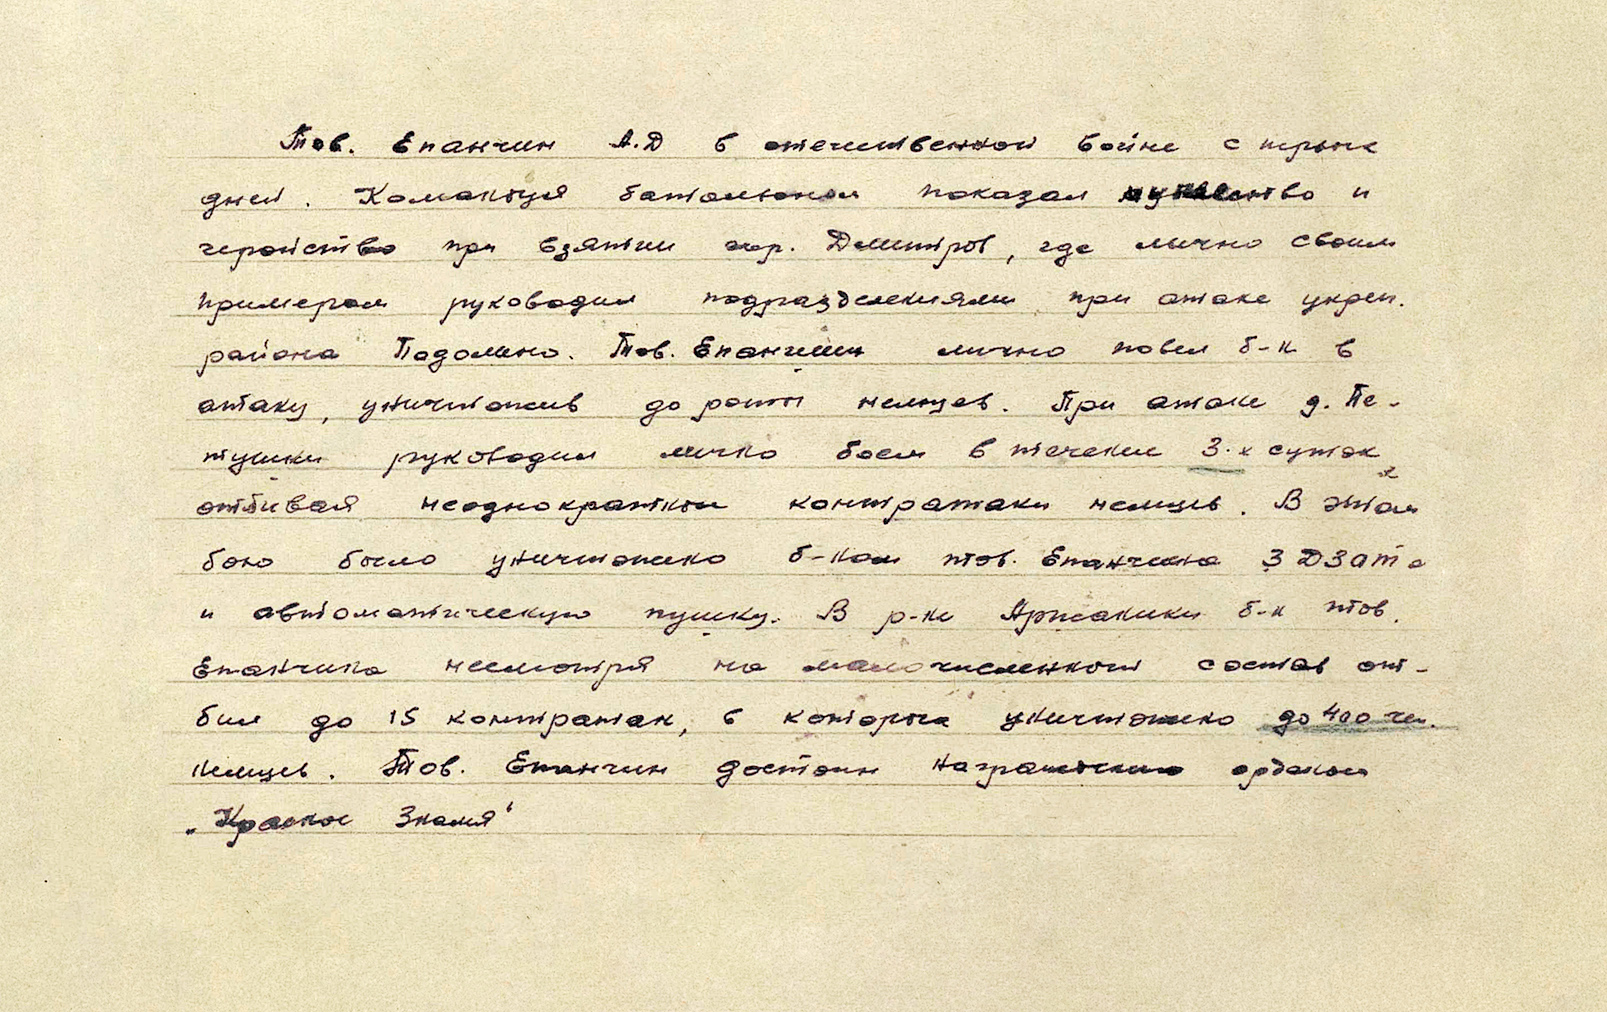 Тов. Епанчин А.Д в отечественной войне с первых
дней. Командуя батальоном показал мужество и
геройство при взятии гор. Дмитров, где лично своим
примером руководил подразделениями при атаке укреп.
района Подолино. Тов. Епанчин лично повел б-н в
атаку, уничтожив до роты немцев. При атаке д. Пе-
тушки руководил лично боем в течение 3-х суток
отбивая неоднократные контратаки немцев. В этом
бою было уничтожено б-ном тов. Епанчина 3 ДЗОТа
и автоматическую пушку. В р-не Аржаники б-н тов.
Епанчина несмотря на малочисленный состав от-
бил до 15 контратак, в которых уничтожено до 400 чел.
немцев. Тов. Епанчин достоин награждению орденом
„Красное Знамя“